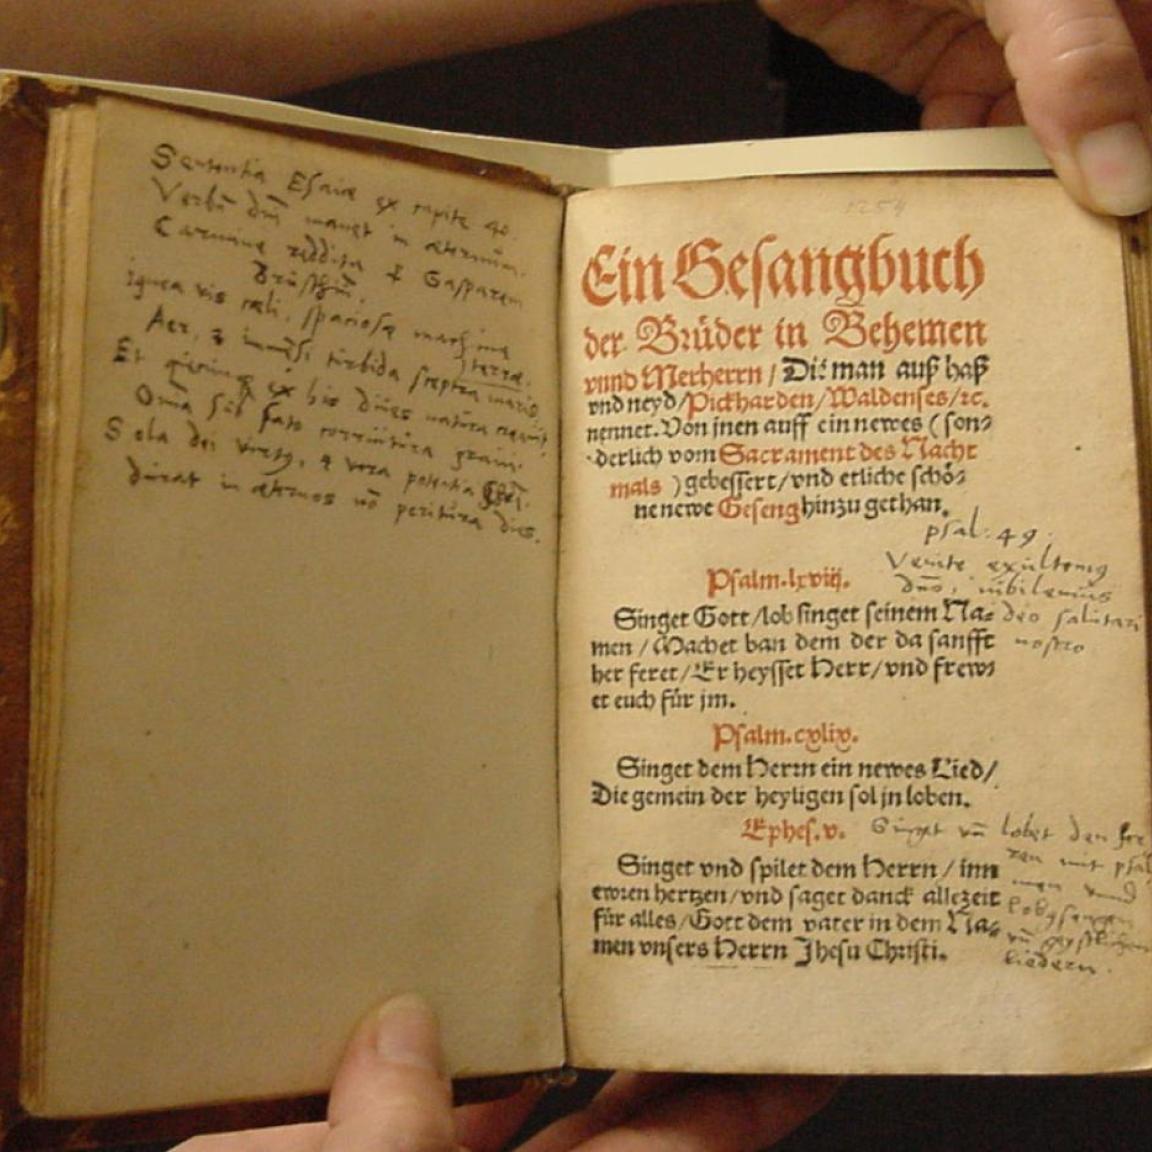 Sententia Esaiæ ex capite 40.
Verbũ dñi manet in æternum.
Carmine reddita Gasparem
Bruschiũ.
Ignea vis cæli, spaciosæ machina
terræ.
Aer, & immẽsi turbida sceptra maris
Et
Oĩa sub fato
Sola dei virtus, & vera potentia
durat in æternos nõ peritura dies.
1254
Ein Gesangbuch
der Brüder in Behemen
vnnd Merherrn / Die man auß haß
vnd neyd / Pickharden / Waldenses / ꝛc.
nennet. Von jnen auff ein newes (son⸗
derlich vom Sacrament des Nacht
mals) gebessert / vnd etliche schö⸗
ne newe Geseng hinzu gethan.
psal. 49.
Venite exultemus
dño, iubilemus
deo salutari
nostro
Psalm. lxviij.
Singet Gott / lobsinget seinem Na⸗
men / Machet ban dem der da sanfft
her feret / Er heysset Herr / vnd frew⸗
et euch für jm.
Psalm. cxlix.
Singet dem Herrn ein newes Lied /
Die gemein der heyligen sol jn loben.
Ephes. v.
Singet vñ lobet den her
ren mit psal
men vnnd
lobgsengen
vñ geystlichen
liedern.
Singet vnd spilet dem Herrn / inn
ewren hertzen / vnd saget danck allezeit
für alles / Gott dem vater in dem Na⸗
men vnsers Herrn Jhesu Christi.